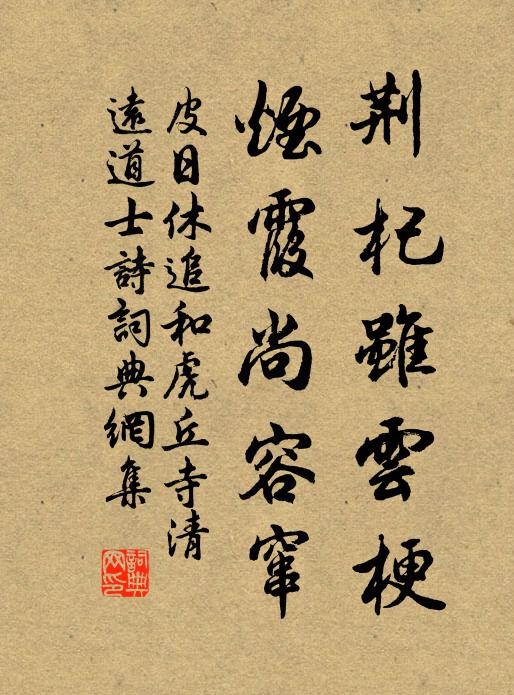 荆杞雖雲梗
煙霞尚容竄
皮日休追和虎丘寺清
遠道士詩詞典網集
詞典
网印